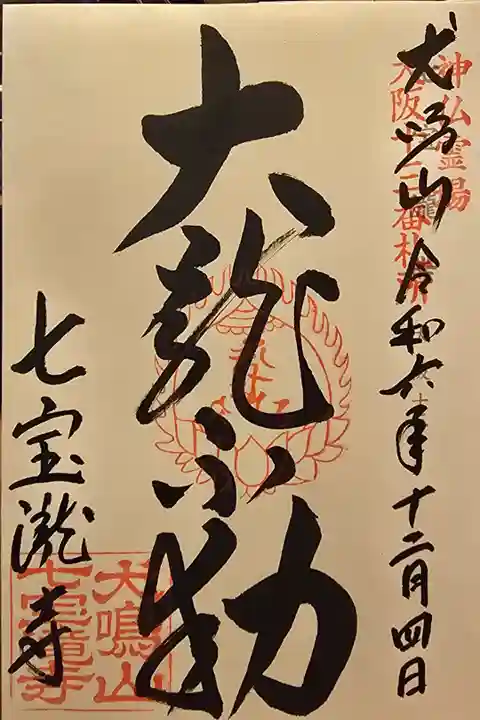 犬鳴山 令和六年十二月四日
神仏霊場
大阪十三番札所
大龍不動
七宝瀧寺
犬鳴山
七宝瀧寺